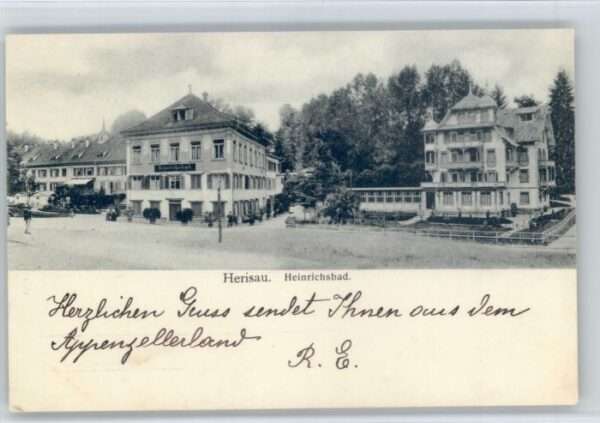 Herisau. Heinrichsbad.
Herzlichen Gruss sendet Ihnen aus dem
Appenzellerland
R. E.